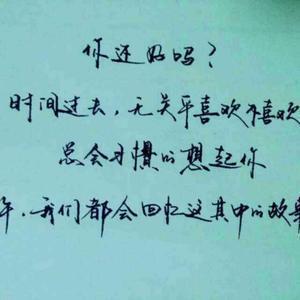 你还好吗？
时间过去，无关乎喜欢不喜欢
总会习惯的想起你
年，我们都会回忆这其中的故事